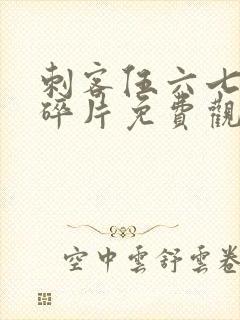 刺客伍六七
碎片免費觀
空中雲舒雲卷